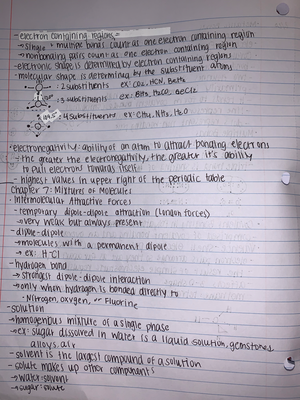 -electron containing regions-
→single + multiple bonds count as one electron containing region
→nonbonding pairs count as one electron containing region
-electronic shape is determined by electron containing regions
-molecular shape is determined by the substituent atoms
: 2 substituents ex: CO2, HCN, BeH2
: 3 substituents ex: BH3, H2CO, GeCl2
: 4 substituents ex: CH4, NH3, H2O
•electronegativity: ability of an atom to attract bonding electrons
-the greater the electronegativity, the greater it's ability
to pull electrons towards itself
-highest values in upper right of the periodic table
Chapter 7: Mixtures of Molecules
•Intermolecular Attractive Forces
-temporary dipole-dipole attraction (London forces)
→very weak but always present
-dipole-dipole
→molecules with a permanent dipole
→ ex: H-Cl
-hydrogen bond
→strongest dipole-dipole interaction
→only when hydrogen is bonded directly to
•Nitrogen, oxygen, or Fluorine
-solution
→homogenous mixture of a single phase
→ex: sugar dissolved in water is a liquid solution, gemstones,
alloys, air
-solvent is the largest compound of a solution
-solute makes up other components
→water: solvent
→sugar: solute